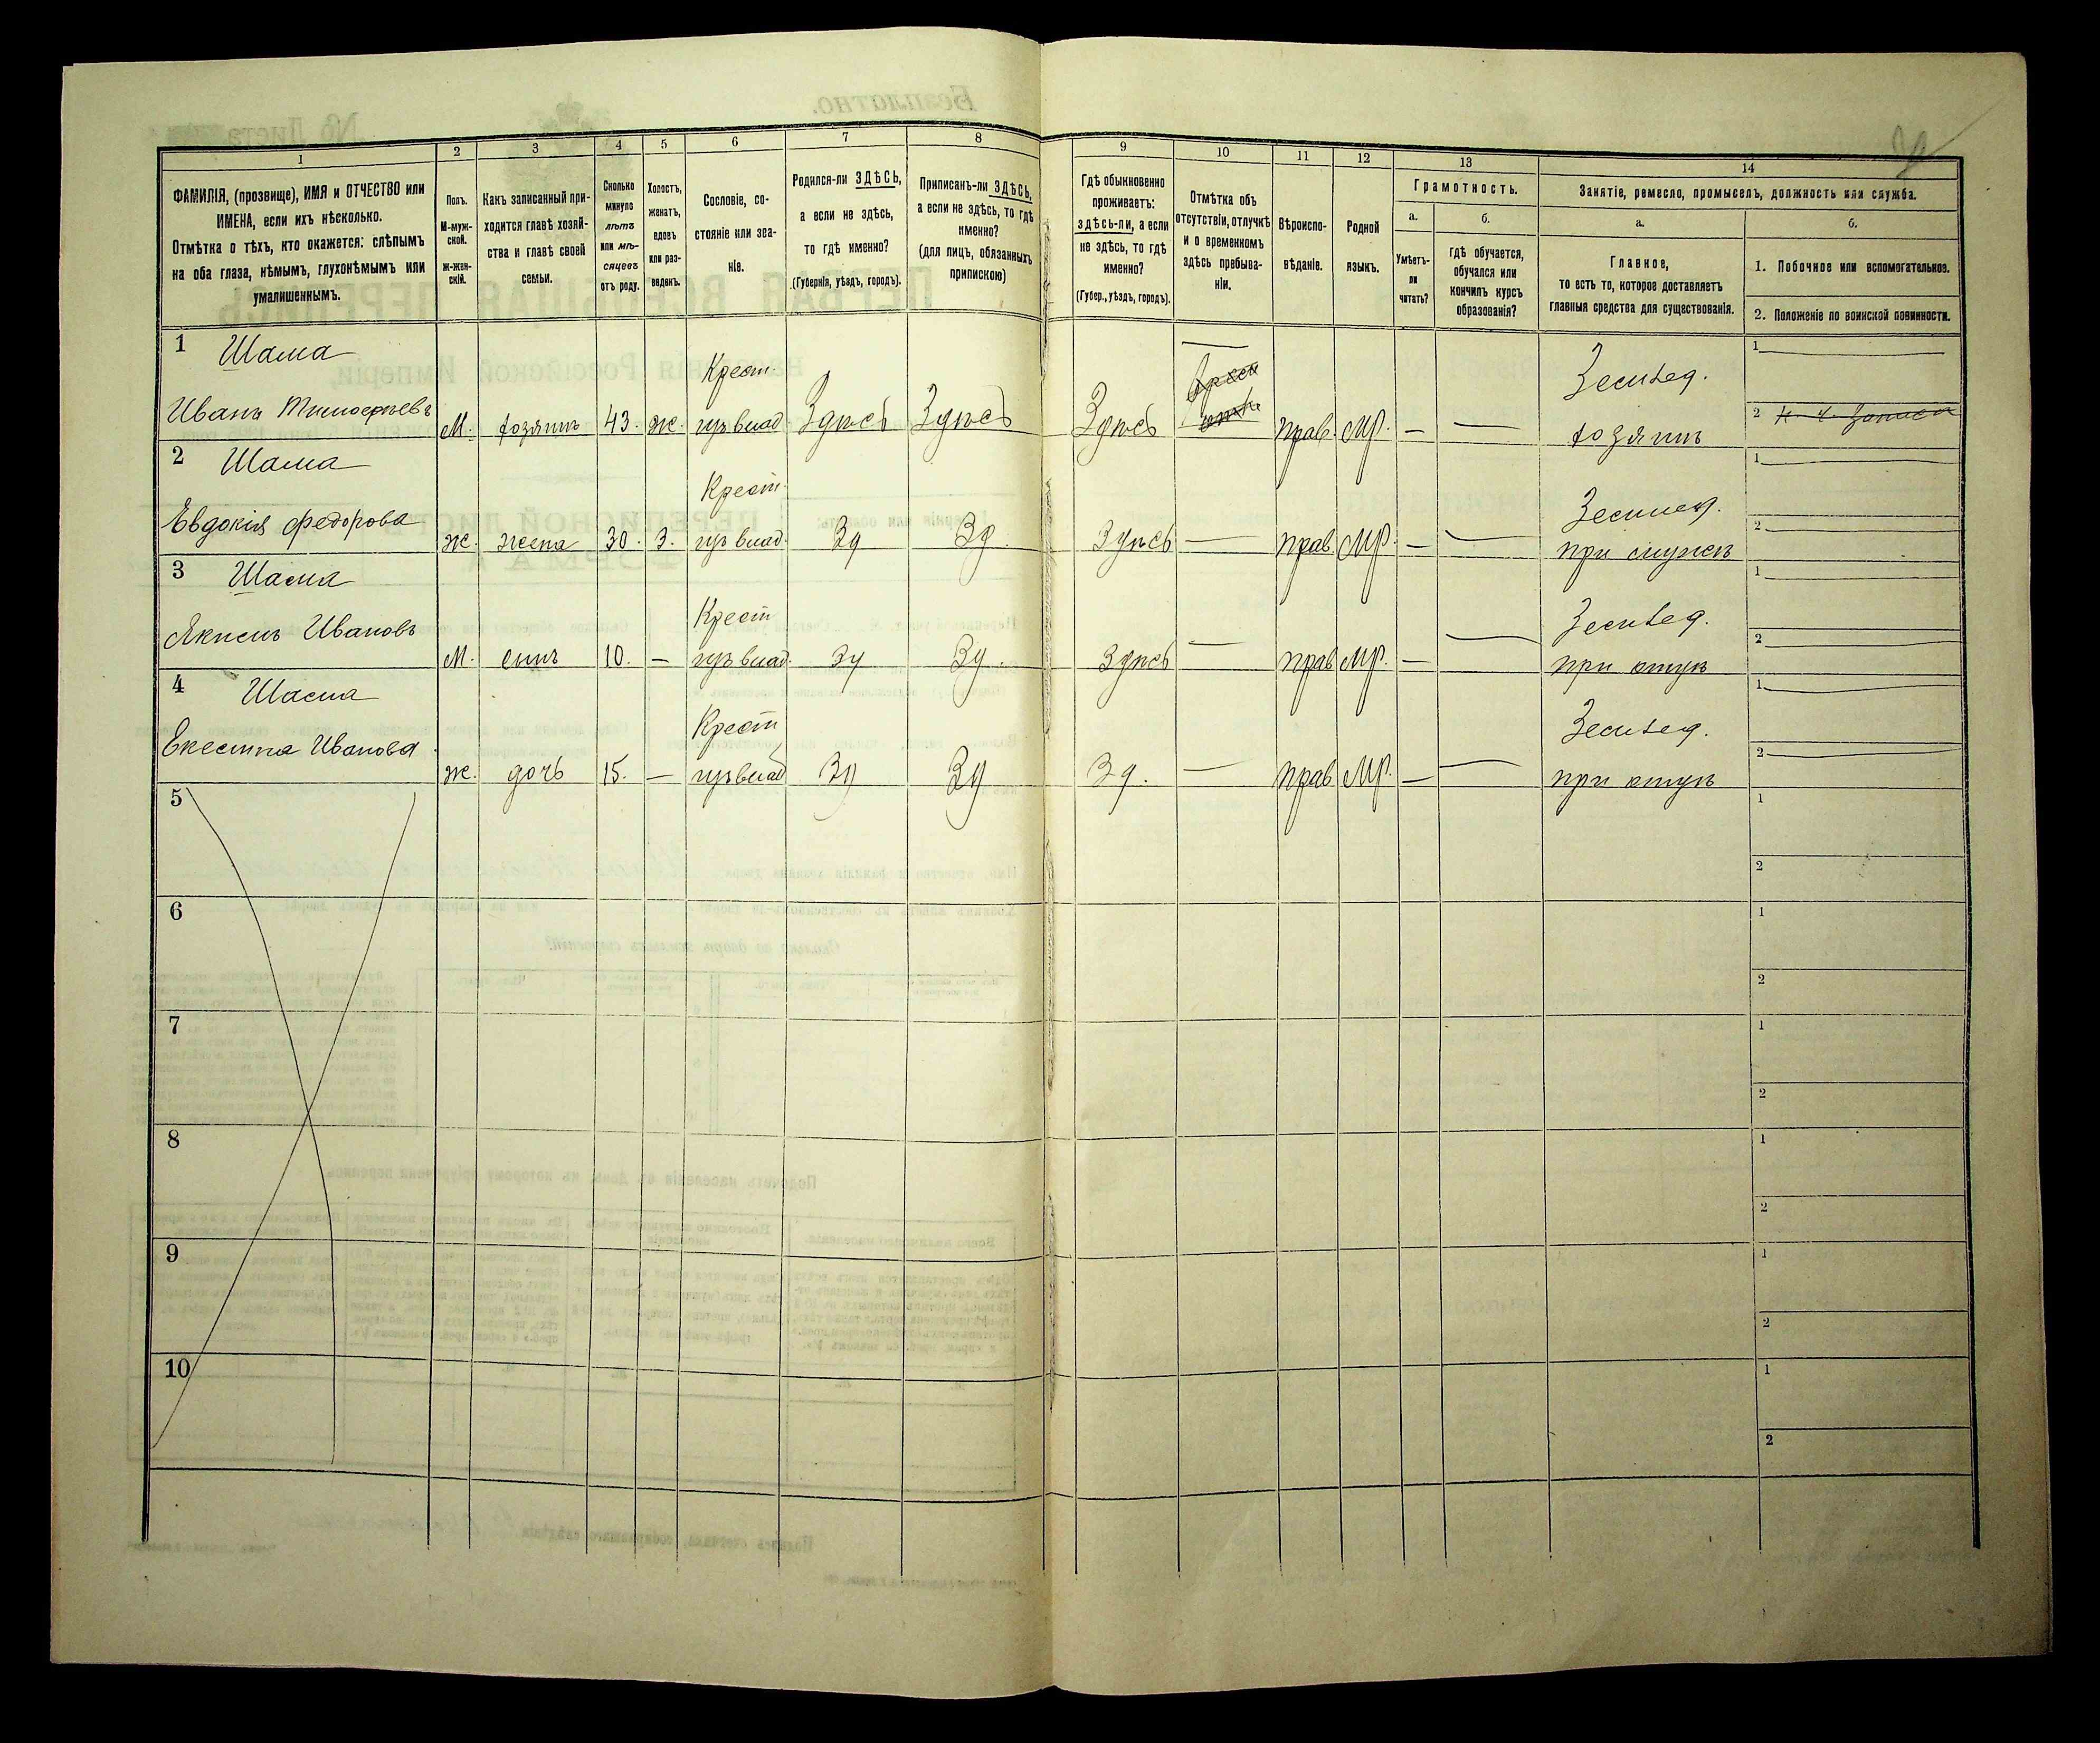 1 2 3 4 5 6 7 8 9 10 11 12 13 14
ФАМИЛІЯ, (прозвище), ИМЯ и ОТЧЕСТВО или
ИМЕНА, если ихъ нѣсколько.
Отмѣтка о тѣхъ, кто окажется: слѣпымъ
на оба глаза, нѣмымъ, глухонѣмымъ или
умалишеннымъ.
Полъ.
М-муж-
ской.
ж-жен-
скій.
Какъ записанный при-
ходится главѣ хозяй-
ства и главѣ своей
семьи.
Сколько
минуло
лѣтъ
или мѣ-
сяцевъ
отъ роду.
Холостъ,
женатъ,
вдовъ
или раз-
веденъ.
Сословіе, со-
стояніе или зва-
ніе.
Родился-ли ЗДѢСЬ,
а если не здѣсь,
то гдѣ именно?
(Губернія, уѣздъ, городъ).
Приписанъ-ли ЗДѢСЬ,
а если не здѣсь, то гдѣ
именно?
(для лицъ, обязанныхъ
припискою)
Гдѣ обыкновенно
проживаетъ:
здѣсь-ли, а если
не здѣсь, то гдѣ
именно?
(Губер., уѣздъ, городъ).
Отмѣтка объ
отсутствіи, отлучкѣ
и о временномъ
здѣсь пребыва-
ніи.
Вѣроиспо-
вѣданіе.
Родной
языкъ.
Грамотность.
а.
Умѣетъ-
ли
читать?
б.
Гдѣ обучается,
обучался или
кончилъ курсъ
образованія?
Занятіе, ремесло, промыселъ, должность или служба.
а.
Главное,
то есть то, которое доставляетъ
главныя средства для существованія.
б.
1. Побочное или вспомогательное.
2. Положеніе по воинской повинности.
1 Шама Крест. Земλед. 1
Иванъ Тимофѣевъ М. хозяинъ 43. ж. гр. влад Здѣсь Здѣсь Здѣсь прав. Мр. — — хозяинъ 2
2 Шама Крест. Землед. 1
Евдокія Федорова ж. жена 30. З. влад. Зд Зд. Здѣсь — прав. Мр. — — при мужѣ 2
3 Шама Крест Землед. 1
Якимъ Ивановъ М. сынъ 10. — влад. Зд Зд. Здѣсь — прав Мр. — — при отцѣ 2
4 Шама Крест Землед. 1
Иванова ж. дочь 15. — влад Зд Зд Зд. — прав Мр. — — при отцѣ 2
5 1
2
6 1
2
7 1
2
8 1
2
9 1
2
10 1
2